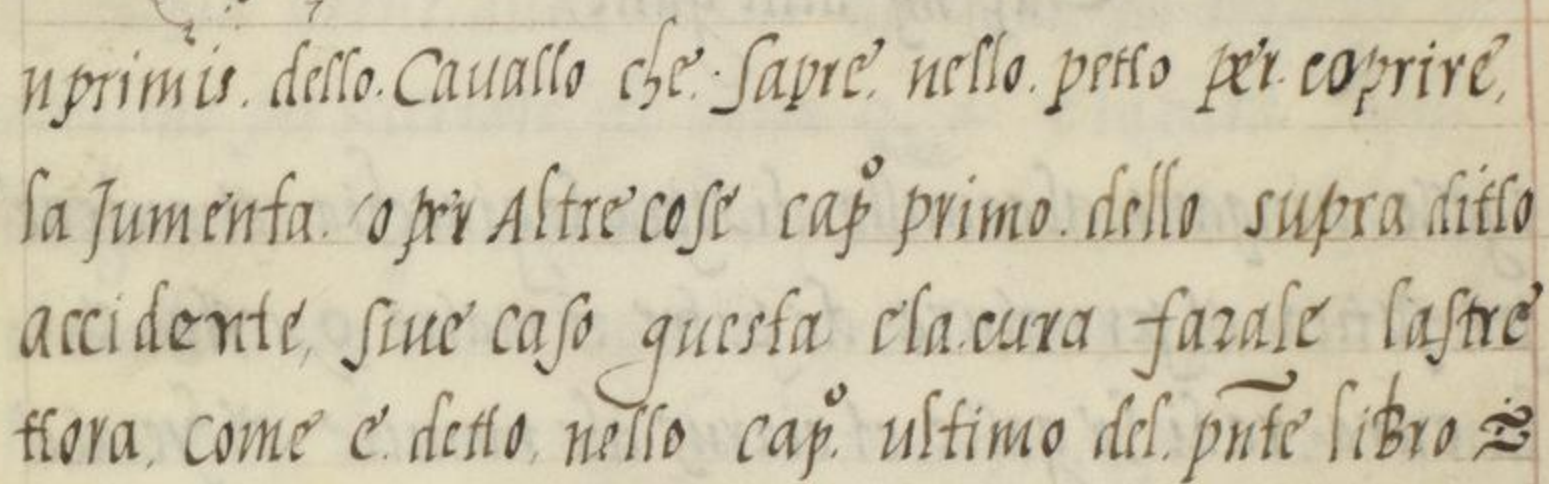 nprimis. dello. Cauallo che. sapre. nello. petto per. coprire,
la Jumenta. o per Altre cose cap.º primo. dello supra ditto
accidente, siue caso questa e la. cura fazale lastre
ttora. Come e. detto. nello cap.º ultimo del. pñte libro